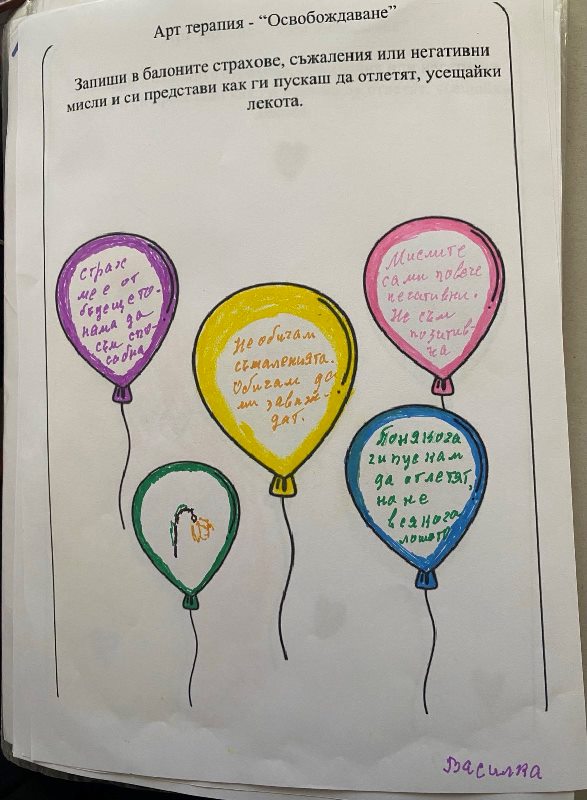 Арт терапия - “Освобождаване”
Запиши в балоните страхове, съжаления или негативни
мисли и си представи как ги пускаш да отлетят, усещайки
лекота.
страх
ме е от
бъдещето.
няма да
съм спо-
собна
Не обичам
съжаленията.
Обичам да
ми завиж-
дат.
Мислите
сами повече
негативни.
Не съм
позитив-
на
Понякога
ги пускам
да отлетят,
но не
всякога
лошото
Василка